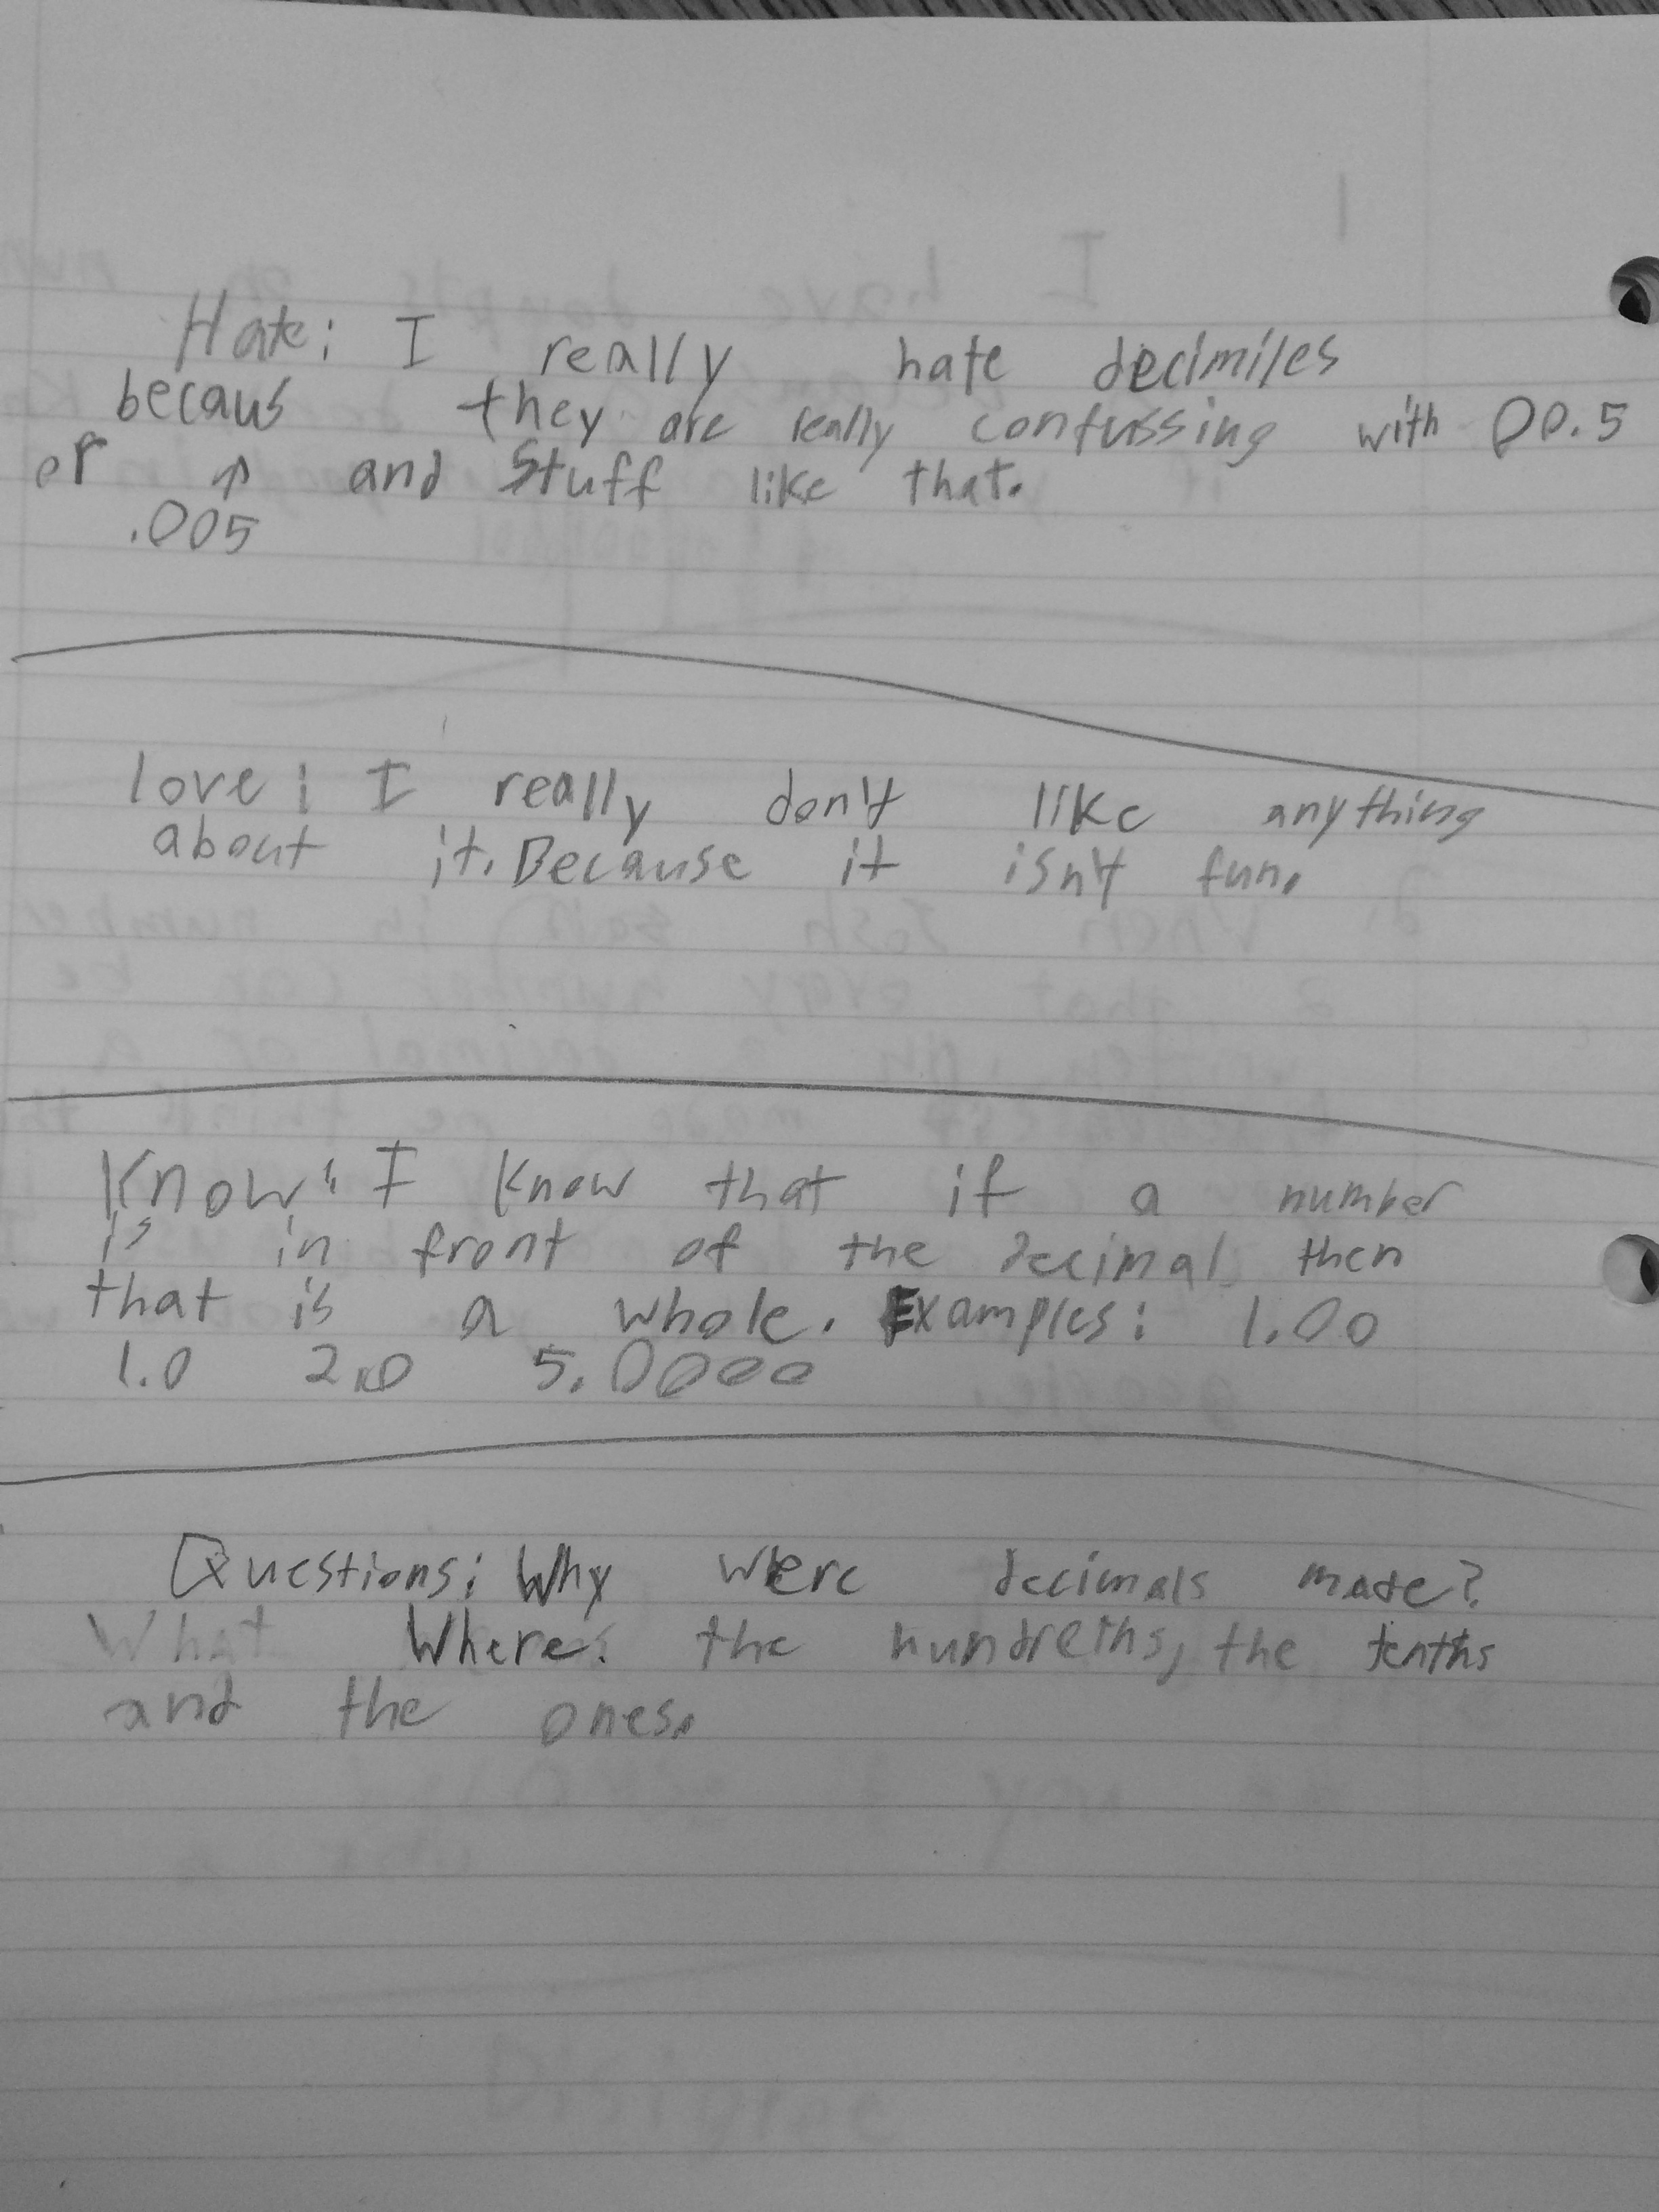 Hate: I really hate decimiles
becaus they are really confussing with 00.5
or ↑ and Stuff like that.
.005
love: I really don't like anything
about it. Because it isn't fun.
Know: I know that if a number
is in front of the decimal then
that is a whole. Examples: 1.00
1.0 2.0 5.0000
Questions: Why were decimals made?
What Where the hundreths, the tenths
and the ones.